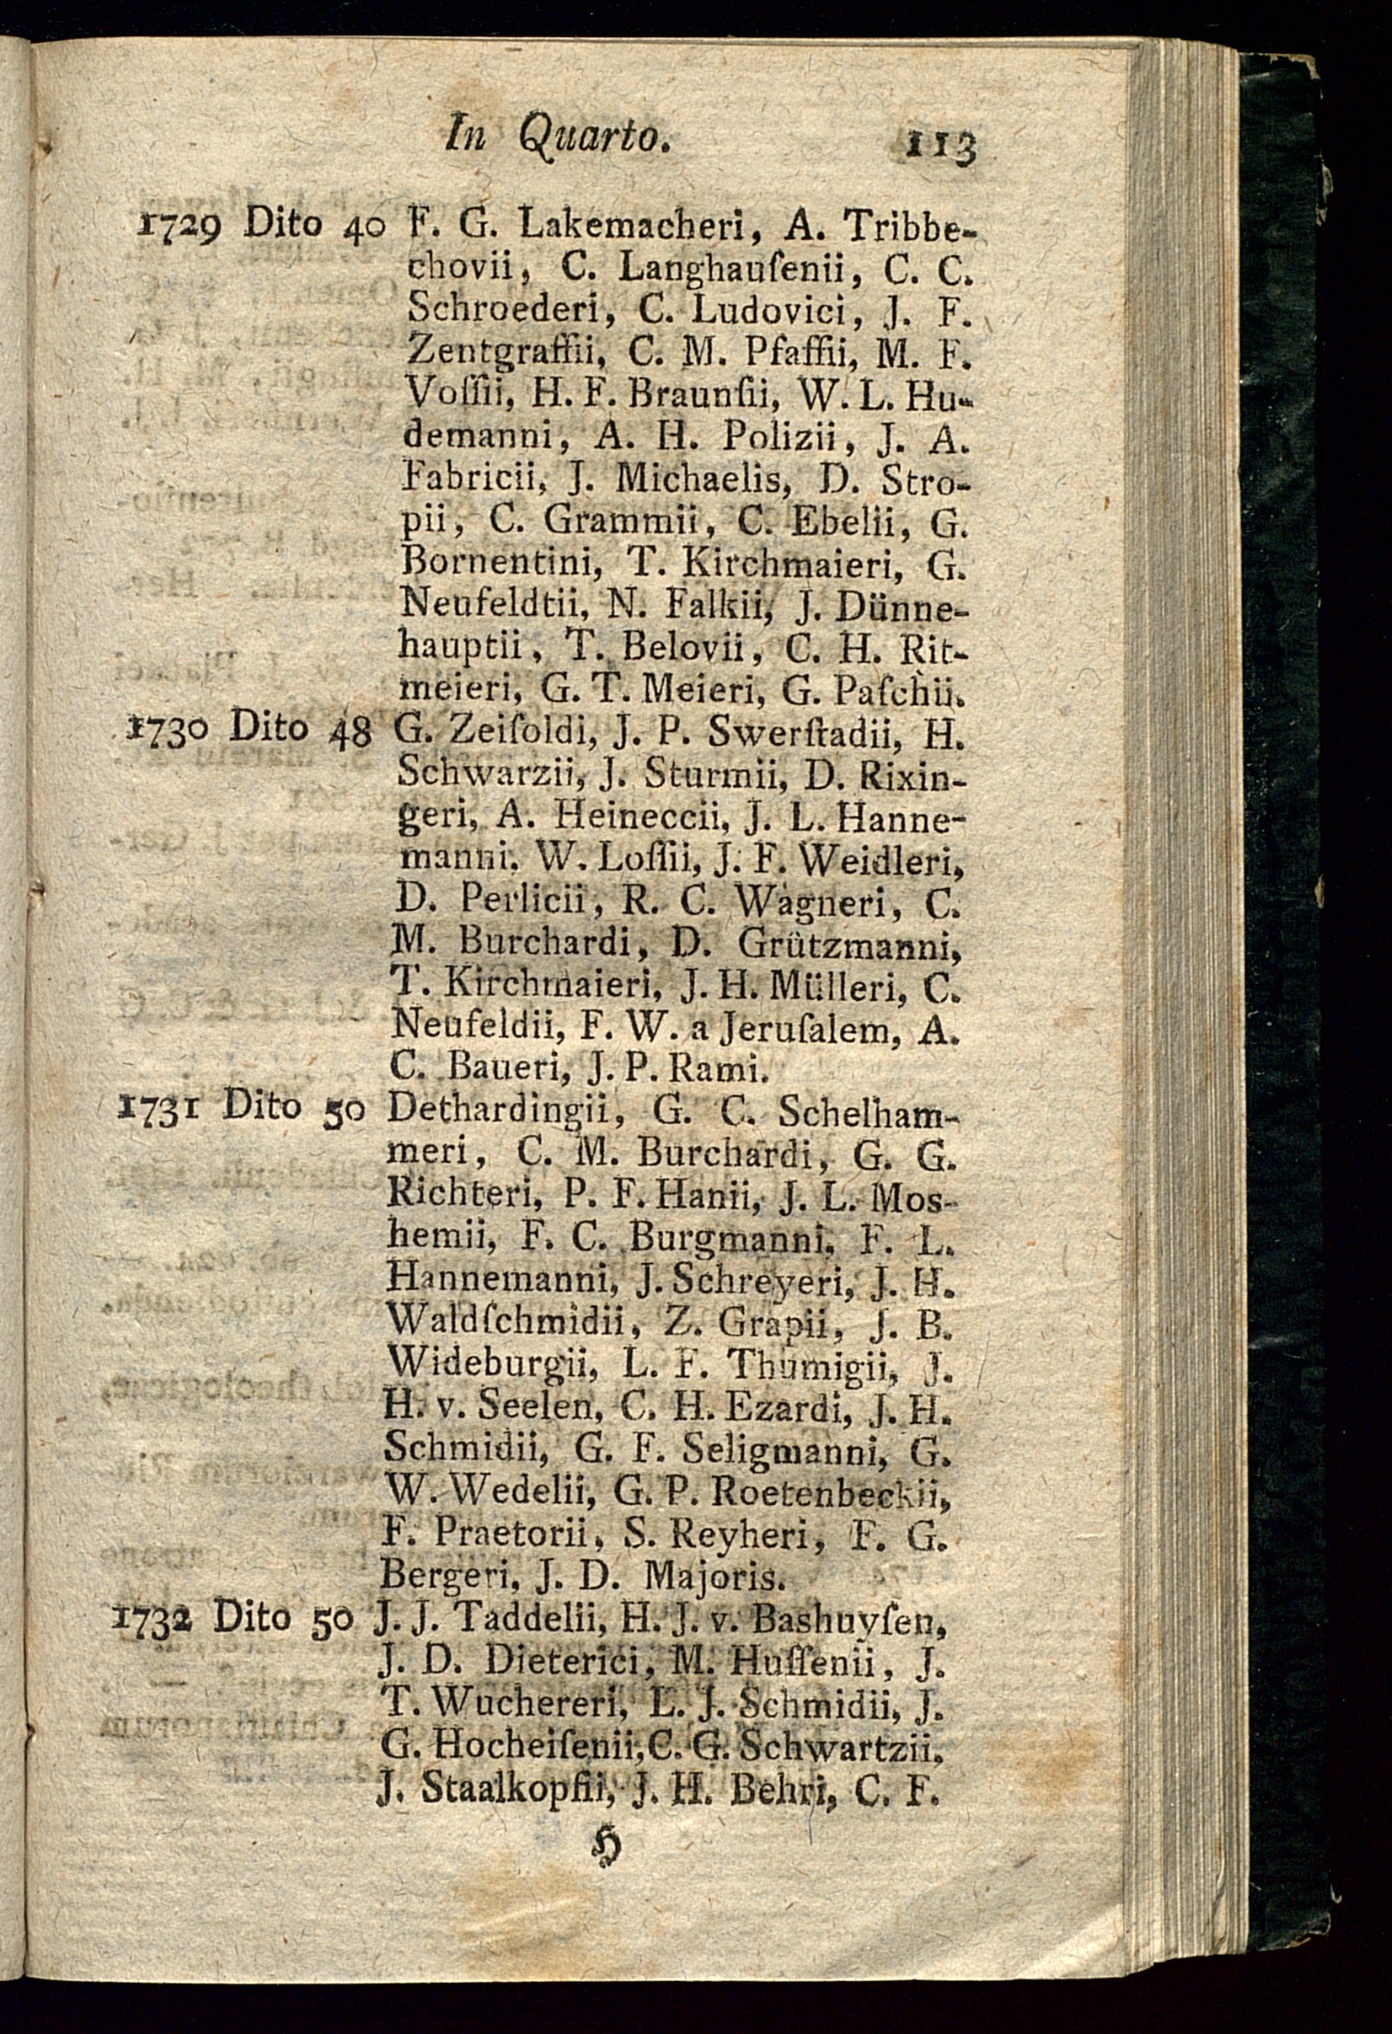 In Quarto. 113
1729 Dito 40 F. G. Lakemacheri, A. Tribbe-
chovii, C. Langhauſenii, C. C.
Schroederi, C. Ludovici, J. F.
Zentgraffii, C. M. Pfaffii, M. F.
Voſſii, H. F. Braunſii, W. L. Hu-
demanni, A. H. Polizii, J. A.
Fabricii, J. Michaelis, D. Stro-
pii, C. Grammii, C. Ebelii, G.
Bornentini, T. Kirchmaieri, G.
Neufeldtii, N. Falkii, J. Dünne-
hauptii, T. Belovii, C. H. Rit-
meieri, G. T. Meieri, G. Paſchii.
1730 Dito 48 G. Zeiſoldi, J. P. Swerſtadii, H.
Schwarzii, J. Sturmii, D. Rixin-
geri, A. Heineccii, J. L. Hanne-
manni. W. Loſſii, J. F. Weidleri,
D. Perlicii, R. C. Wagneri, C.
M. Burchardi, D. Grützmanni,
T. Kirchmaieri, J. H. Mülleri, C.
Neufeldii, F. W. a Jeruſalem, A.
C. Baueri, J. P. Rami.
1731 Dito 50 Dethardingii, G. C. Schelham-
meri, C. M. Burchardi, G. G.
Richteri, P. F. Hanii, J. L. Mos-
hemii, F. C. Burgmanni, F. L.
Hannemanni, J. Schreyeri, J. H.
Waldſchmidii, Z. Grapii, J. B.
Wideburgii, L. F. Thumigii, J.
H. v. Seelen, C. H. Ezardi, J. H.
Schmidii, G. F. Seligmanni, G.
W. Wedelii, G. P. Roetenbeckii,
F. Praetorii, S. Reyheri, F. G.
Bergeri, J. D. Majoris.
1732 Dito 50 J. J. Taddelii, H. J. v. Bashuyſen,
J. D. Dieterici, M. Huſſenii, J.
T. Wuchereri, L. J. Schmidii, J.
G. Hocheiſenii, C. G. Schwartzii,
J. Staalkopfii, J. H. Behri, C. F.
H